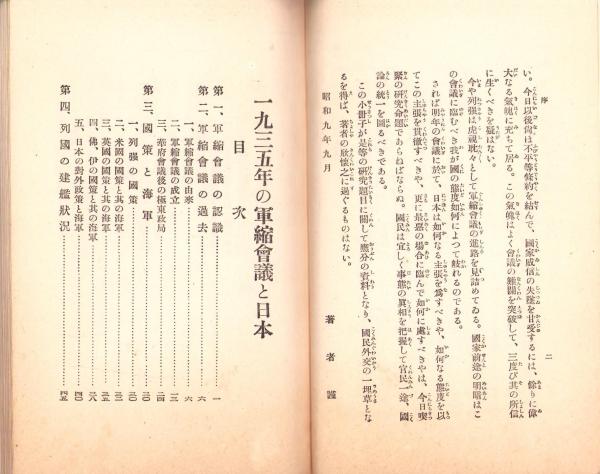 序
二
い。今日以後尙ほ不平等條約を結んで、國家威信の失墜を甘受するには、餘りに偉
大なる氣魄に充ちて居る。この氣魄はよく會議の難關を突破して、三度び其の所信
に生くべきを疑はない。
今や列强は虎視眈々として軍縮會議の進路を見詰めてゐる。國家前途の明暗はこ
の會議に臨むべき我が國の態度如何によつて岐れるのである。
されば明年の會議に於て、日本は如何なる主張を爲すべきや、如何なる態度を以
てこの主張を貫徹すべきや、更に最惡の場合に臨んで如何に處すべきやは、今日喫
緊の硏究命題であらねばならぬ。國民は宜しく事態の眞相を把握して官民一途、國
論の統一を圖るべきである。
この小冊子が是等の硏究題目に關して應分の資料となり、國民外交の一埋草とな
るを得ば、著者の欣懷之に過ぐるものはない。
昭和九年九月
著者謹
一九三五年の軍縮會議と日本
目次
第一、軍縮會議の認識……一
第二、軍縮會議の過去……六
一、軍縮會議の由來……六
二、軍縮會議の成立……
三、華府會議後の極東政局……
第三、國策と海軍……三〇
一、列强の國策……三〇
二、米國の國策と其の海軍……
三、英國の國策と其の海軍……
四、佛、伊の國策と其の海軍……三八
五、日本の對外政策と海軍……四〇
第四、列國の建艦狀況……四五